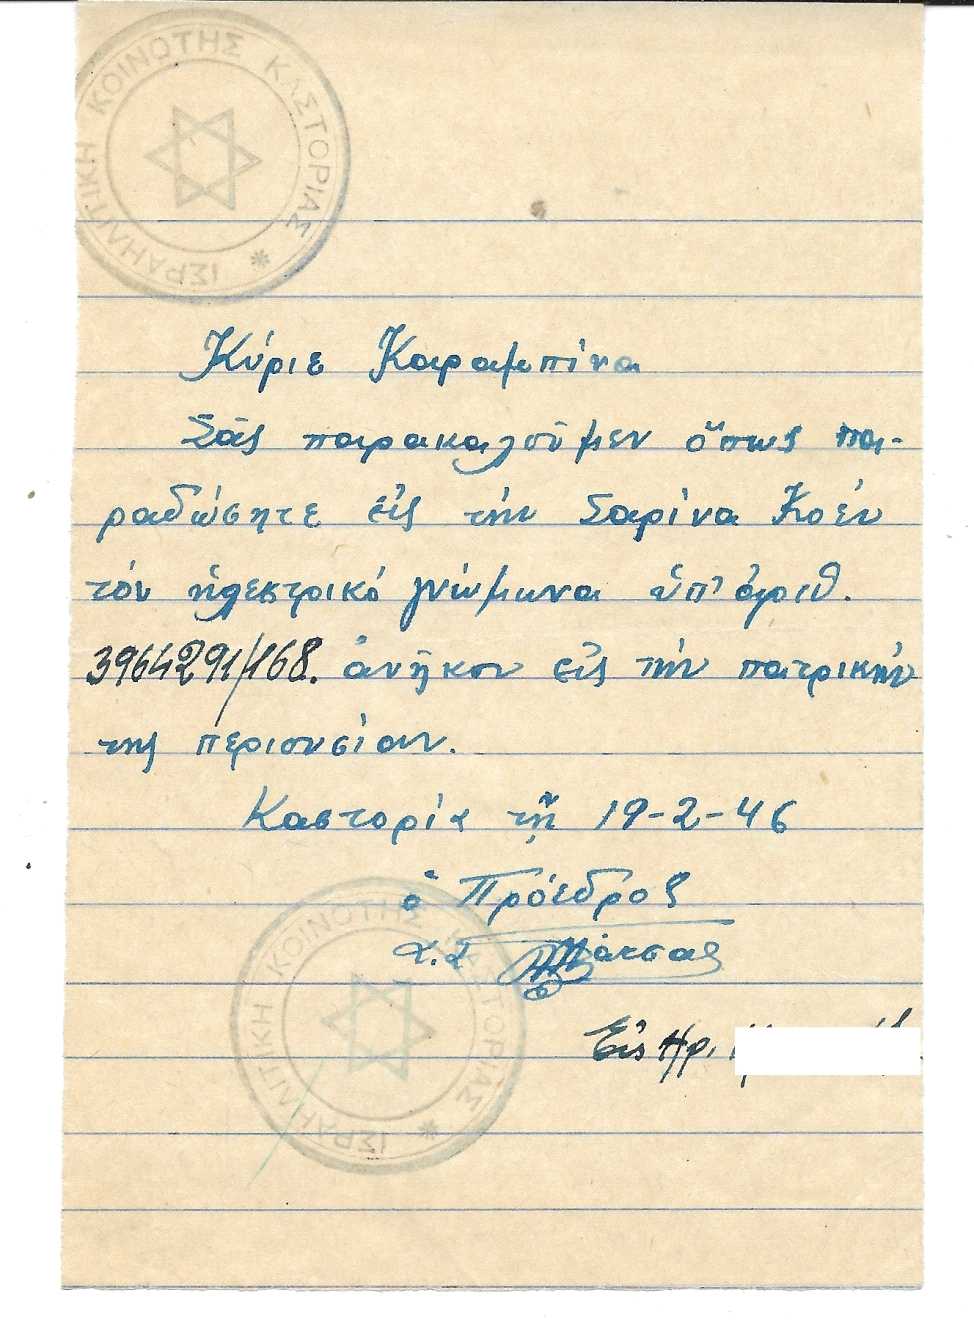 ΙΣΡΑΗΛΙΤΙΚΗ ΚΟΙΝΟΤΗΣ ΚΑΣΤΟΡΙΑΣ
Κύριε Καραμπίνα
Σᾶς παρακαλοῦμεν ὅπως πα-
ραδώσητε εἰς τήν Σαρίνα Κοέν
τόν ἠλεκτρικό γνώμωνα ὑπ' ἀριθ.
3964291/168. ἀνῆκον εἰς τήν πατρικήν
της περιουσίαν.
Καστορία τῇ 19-2-46
ὁ Πρόεδρος
Μάτσας
ΙΣΡΑΗΛΙΤΙΚΗ ΚΟΙΝΟΤΗΣ ΚΑΣΤΟΡΙΑΣ
Εἰς Ἠρ.